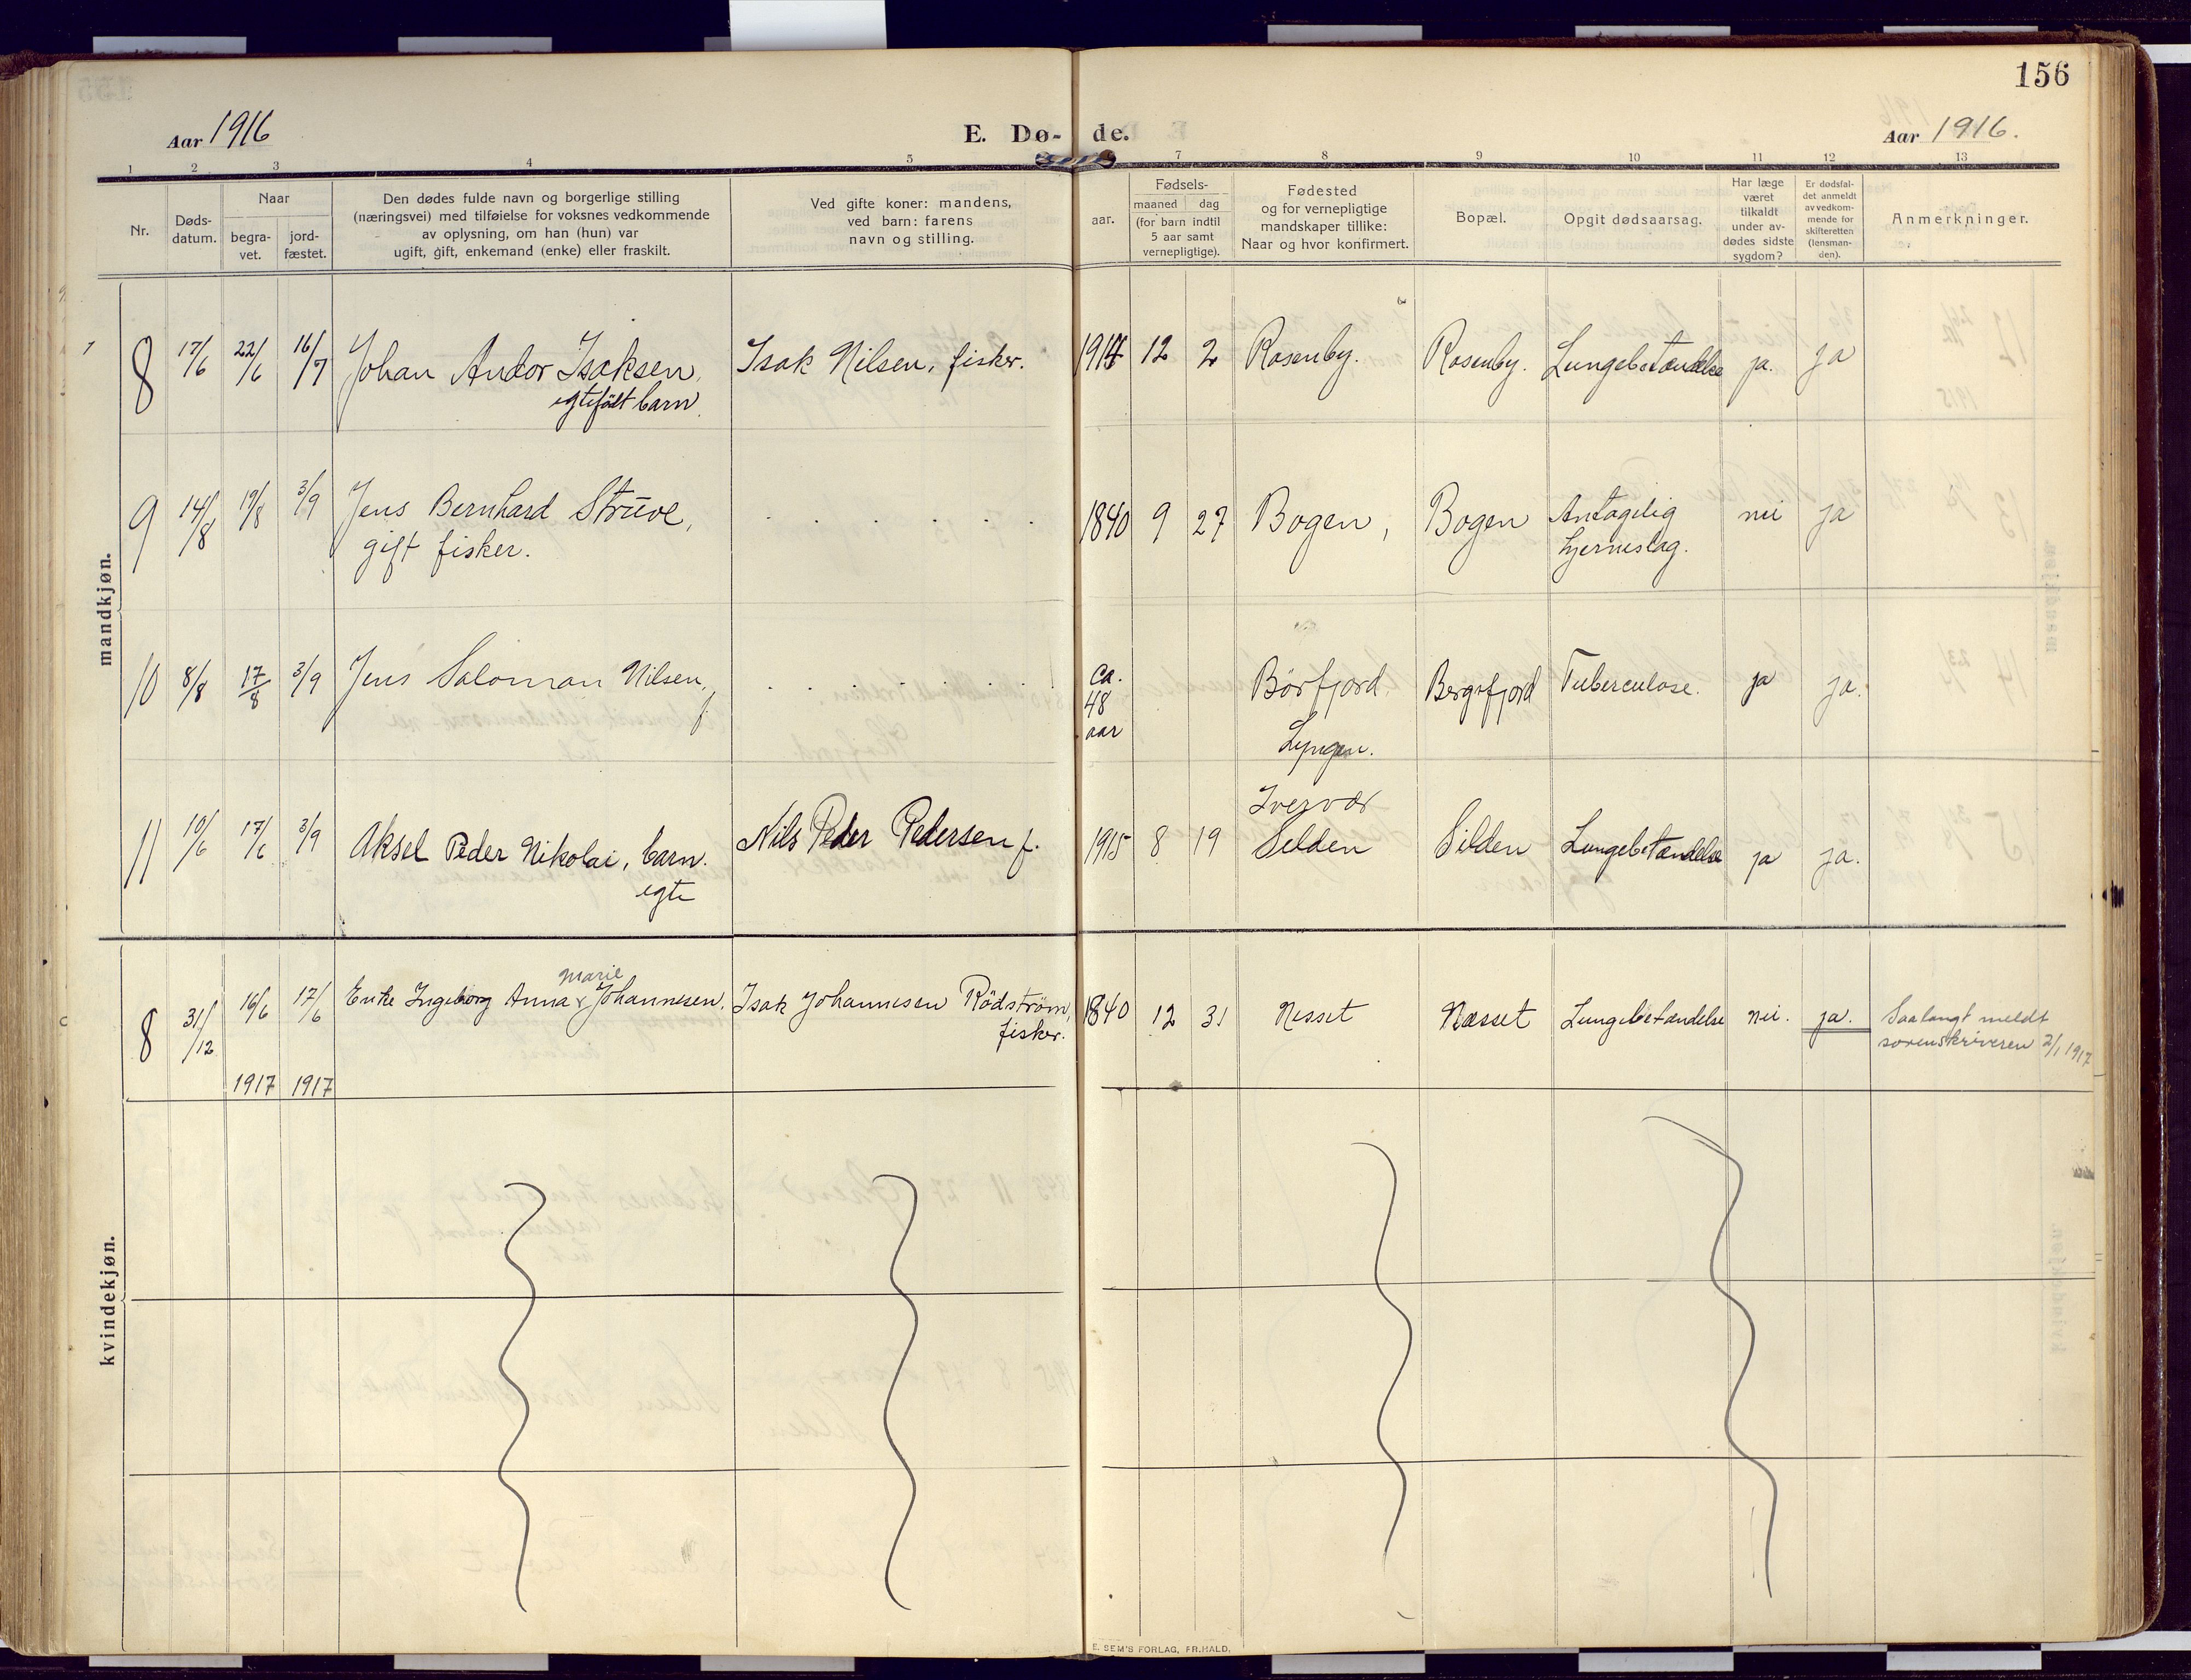 156
Aar 1916
E. Dø- de.
Aar 1916.
1 2 3 4 5 7 8 9 10 11 12 13
Nr.
Døds-
datum.
Naar
begra-
vet.
jord-
fæstet.
Den dødes fulde navn og borgerlige stilling
(næringsvei) med tilføielse for voksnes vedkommende
av oplysning, om han (hun) var
ugift, gift, enkemand (enke) eller fraskilt.
Ved gifte koner: mandens,
ved barn: farens
navn og stilling.
Fødsels-
aar.
maaned dag
(for barn indtil
5 aar samt
vernepligtige).
Fødested
og for vernepligtige
mandskaper tillike:
Naar og hvor konfirmert.
Bopæl.
Opgit dødsaarsag.
Har læge
været
tilkaldt
under av-
dødes sidste
sygdom?
Er dødsfal-
det anmeldt
av vedkom-
mende for
skifteretten
(lensman-
den).
Anmerkninger.
mandkjøn.
8 17/6 22/6 16/7 Johan Andor Isaksen, Isak Nilsen, fisker. 1914 12 2 Rosenby. Rosenby. Lungebetændelse ja. ja
egtefödt barn.
9 14/8 19/8 3/9 Jens Bernhard Struve, 1840 9 27 Bogen, Bogen Antagelig nei ja
gift fisker. hjerneslag.
10 8/8 17/8 3/9 Jens Salomon Nilsen, f ca. Börfjord. Bergsfjord Tuberculose. ja ja.
48
aar Lyngen.
Ivervær
11 10/6 17/6 3/9 Aksel Peder Nikolai, barn. Nils Peder Pedersen f. 1915 8 19 Selden Silden Lungebetændelse ja ja.
egte
kvindekjøn.
Marie
8 31/12 16/6 17/6 Enke Ingeborg Anna Johannesen. Isak Johannesen Rödström, 1840 12 31 Nesset Næsset Lungebetændelse nei. ja. Saalangt meldt
fisker. sorenskriveren 2/1 1917
1917 1917
E. SEM'S FORLAG, FR.HALD.